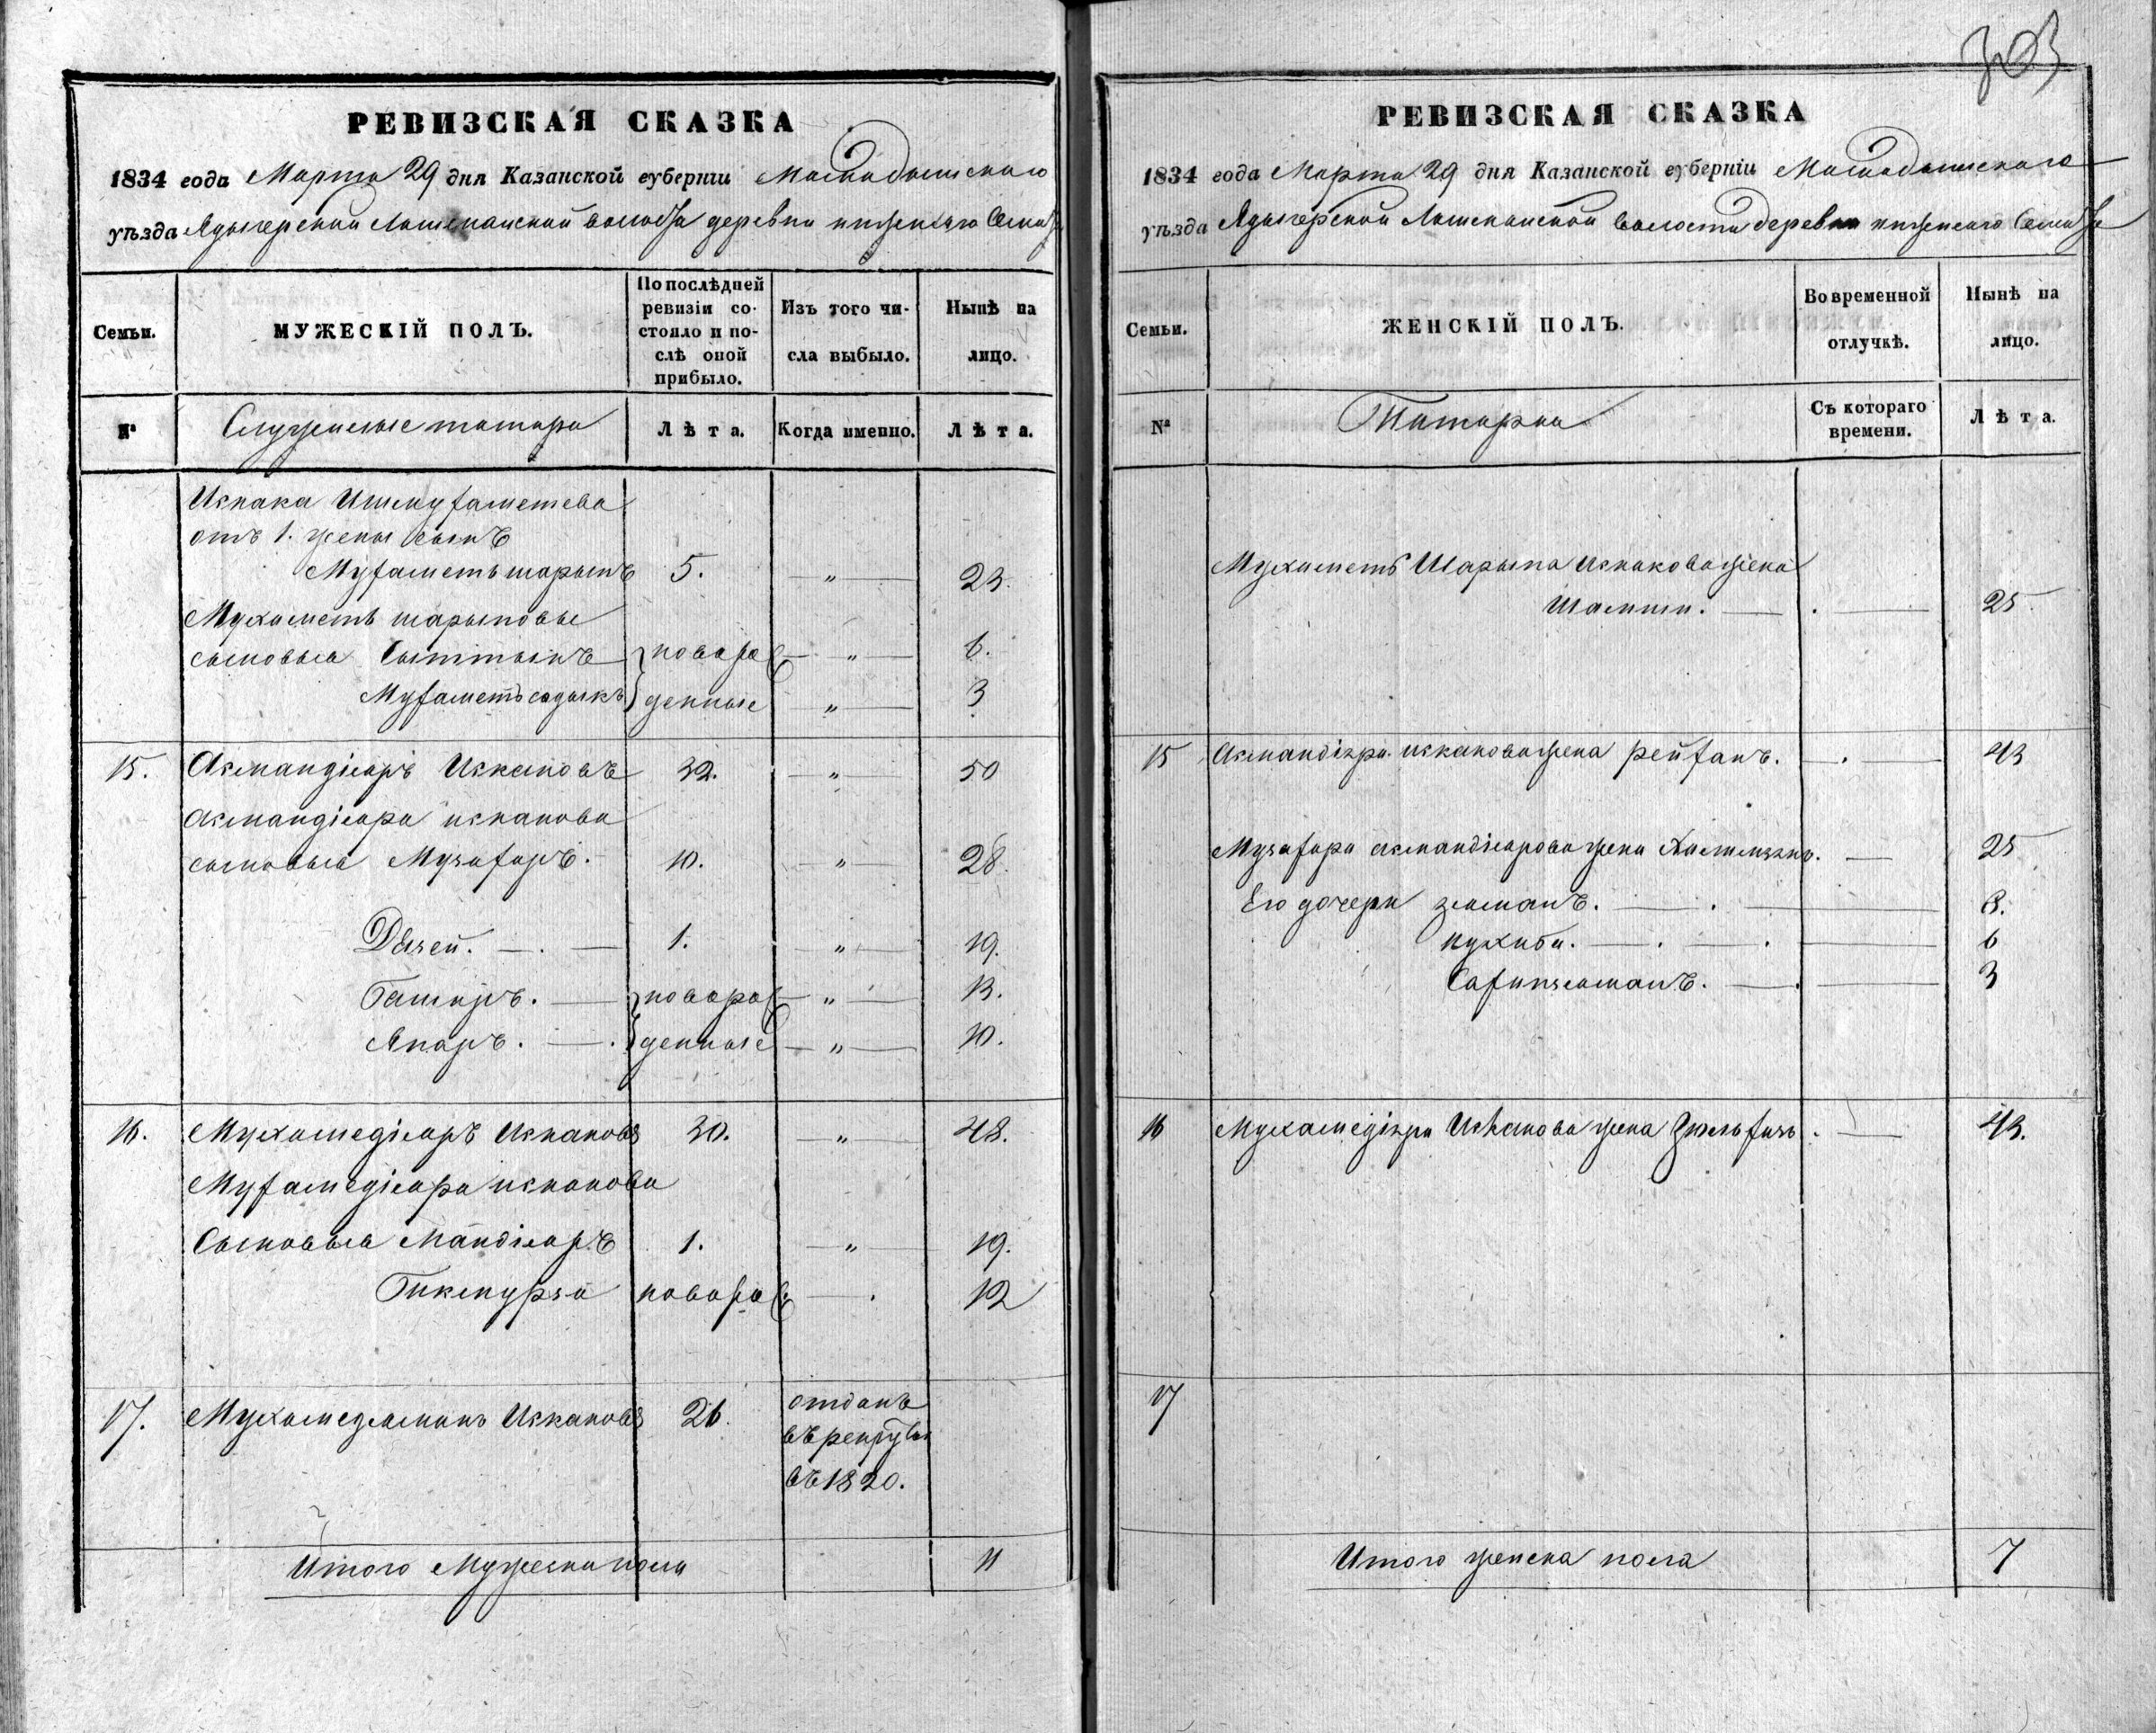 РЕВИЗСКАЯ СКАЗКА
1834 года Марта 29 дня Казанской губерніи Мамадышского
уѣзда Адыгерской волости деревни нижнего
Семьи.
МУЖЕСКІЙ ПОЛЪ.
По послѣдней ревизіи состояло и послѣ оной прибыло.
Изъ того числа выбыло.
Нынѣ на лицо.
№
Служилые татара
Лѣта.
Когда именно.
Лѣта.
Искака Ишмухаметева
отъ 1. жены сынъ
Мухаметь шарыпъ 5. — „ — 23.
Мухаметь шарыповы
сыновья новоро — „ — 6.
Мухаметь садыкъ жденные — „ — 3
15. Искаковъ 32. — „ — 50
искакова
сыновья Музафаръ. 10. — „ — 28.
1. „ 19.
новоро — „ — 13.
Апаръ. жденные — „ — 10.
16. Мухамедіяръ Искаковъ 30. — „ — 48.
Мухамедіяра искакова
Сыновья Мандіяръ 1. — „ — 19.
новоро — 12
17. Мухамедзаманъ Искаковъ 26. отданъ
въ рекруты
въ 1820.
Итого Мужеска пола 11
303
РЕВИЗСКАЯ СКАЗКА
1834 года Марта 29 дня Казанской губерніи Мамадышского
уѣзда Адыгерской волости деревни нижнего
Семьи.
ЖЕНСКІЙ ПОЛЪ.
Во временной отлучкѣ.
Нынѣ на лицо.
№
Татарки
Съ котораго времени.
Лѣта.
Мухаметь Шарыпа Искакова жена
25.
15 искакова жена рейханъ. 43
Музафара жена 25
Его дочери заманъ. 8.
6
Сафизаманъ. 3
16 Мухамедіяра Исхакова жена 43.
17
Итого женска пола 7